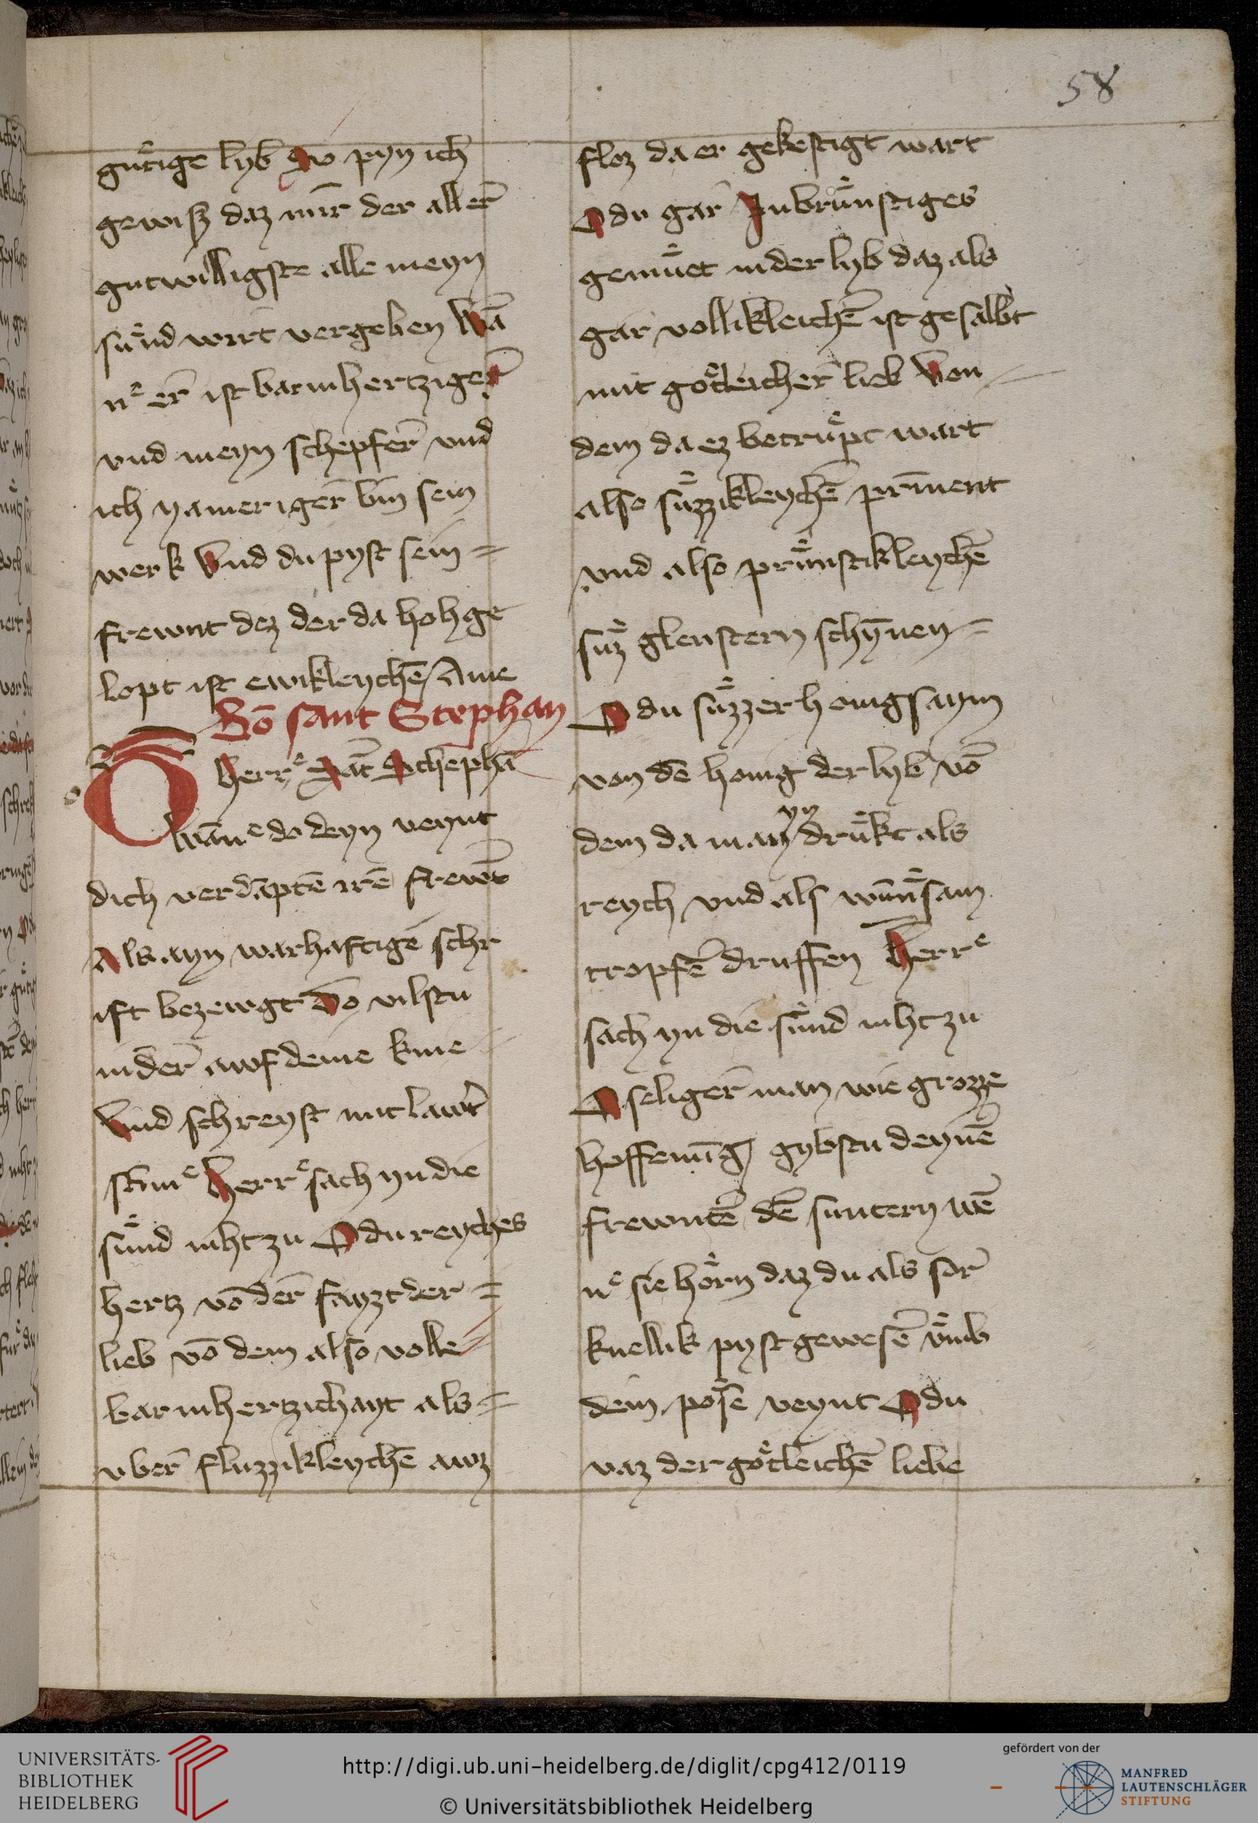 58
guͤtige lyb So pyn ich
gewisz daz mir der aller̄
gutwilligste alle meyn
suͤnd wirt vergeben Wā
nͤ er ist barmhertzigeꝛ̄
vnd meyn schepfer̄ vnd
ich yameriger̄ bin sein
werk Vnd du pyst sein =
frewnt dez der da hohge
lopt ist ewikleychē Ame
Vō sant Stephan
O herrͤ Sāt Stephā
Wāneͤ do deyn veynt
dich verdāptē irē frewēt
Als ayn warhaftige schr
ift bezewgt Do vilstu
nider̄ awf deine knie
Vnd schreyst mit lawt̄
stīmͤ herrͤ sach yn die
suͤnd niht zu O du reyches
hertz vō der̄ fayzt der =
lieb vō dem also volle
barmhertzichayt als =
vber̄ fluzzikleychē awz
floz da er gekestigt wart
O du gar̄ Inbruͤnstiges
gemuͤet in der lyb daz als
gar vollikleichē ist gesalbt
mit goͤtleicher̄ lieb Von
dem da ez betruͤpt wart
also suͤzzikleychē priment
vnd also pruͤnstikleychē
suͤz glenstern schynen =
O du suͤzzer honigsaym
von dē honig der lyb vō
dem da man yn druͤkt als
reych vnd als wunsam
tropfē druffen Herrͤ
sach yn die suͤnd niht zu
O seliger̄ man wie grozze
hoffenūg gybstu deynē
frewntē dē suntern wē
nͤ sie hoͤrn daz du als sor
knellik pyst gewesē vͤmb
dein posē veynt O du
vaz der goͤtleichē liebe
UNIVERSITÄTS-
BIBLIOTHEK
HEIDELBERG
http://digi.ub.uni-heidelberg.de/diglit/cpg412/0119
© Universitätsbibliothek Heidelberg
gefördert von der
MANFRED
LAUTENSCHLÄGER
STIFTUNG